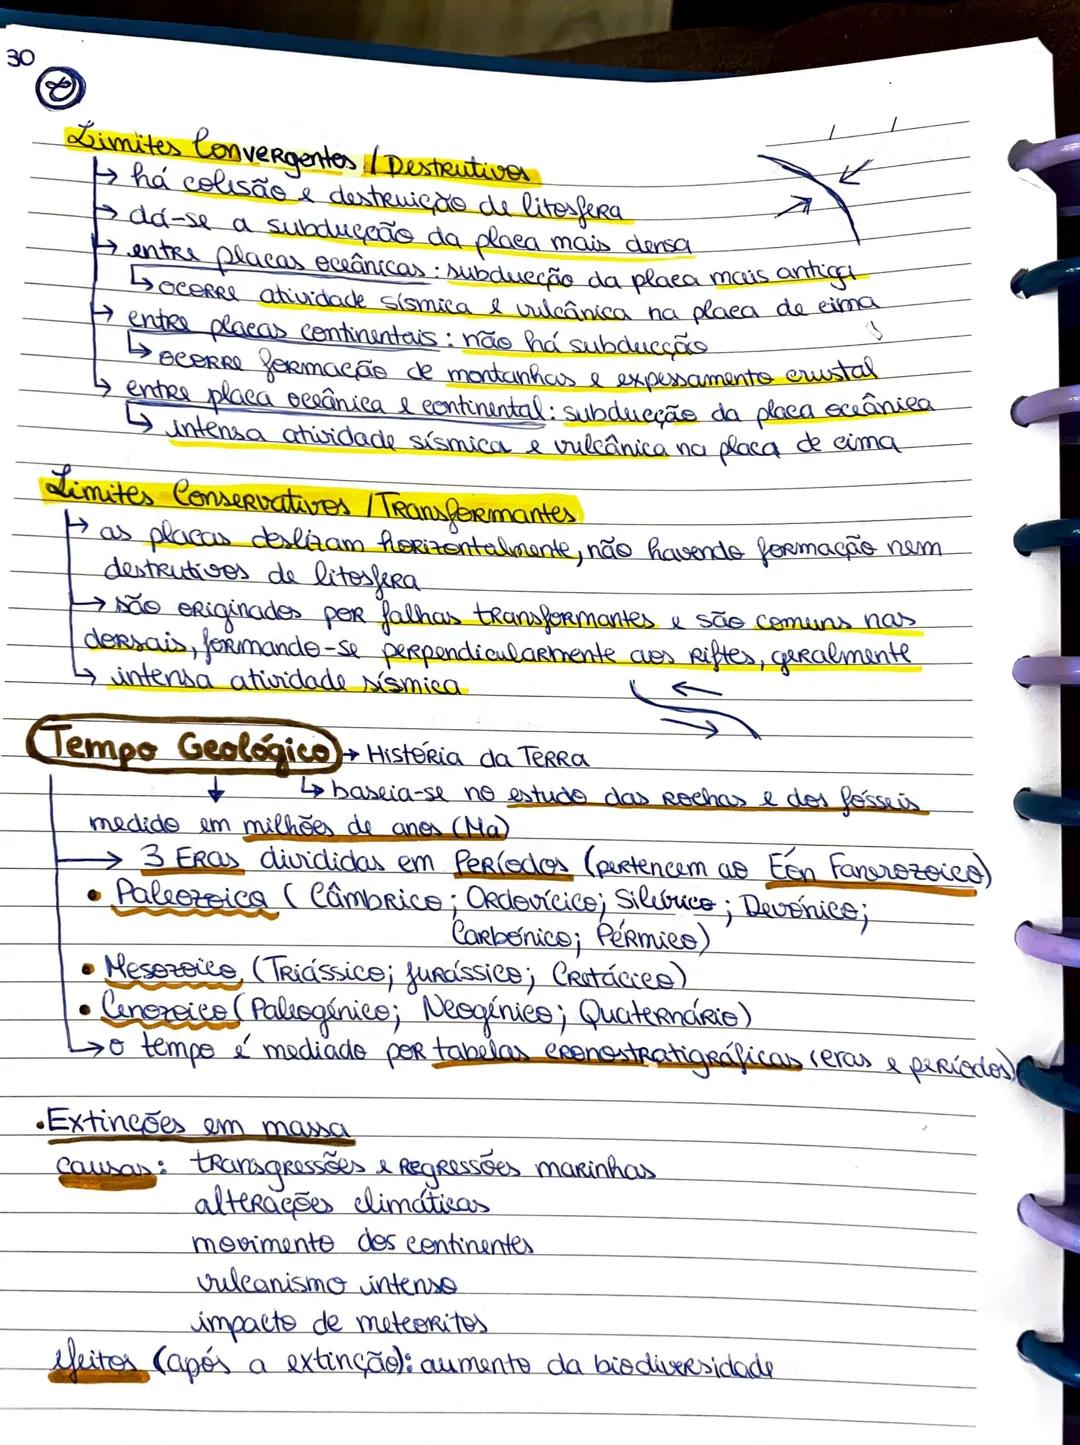 30
Limites Convergentes / Destrutivos
↳ há colisão e destruição de litosfera
↳ dá-se a subducção da placa mais densa
↳ entre placas oceânicas: subducção da placa mais antiga
↳ ocorre atividade sísmica e vulcânica na placa de cima
↳ entre placas continentais: não há subducção
↳ ocorre formação de montanhas e expessamento crustal
↳ entre placa oceânica e continental: subducção da placa oceânica
↳ intensa atividade sísmica e vulcânica na placa de cima
Limites Conservativos / Transformantes
↳ as placas deslizam horizontalmente, não havendo formação nem
destrutivos de litosfera
→ são originados por falhas transformantes e são comuns nas
dorsais, formando-se perpendicularmente aos riftes, geralmente
↳ intensa atividade sísmica
Tempo Geológico → História da Terra
↳ baseia-se no estudo das rochas e dos fósseis
medido em milhões de anos (Ma)
→ 3 Eras divididas em Períodos (pertencem ao Eón Fanerozoico)
• Paleozoica (Câmbrico; Ordovícico; Silúrico; Devónico;
Carbónico; Pérmico)
• Mesozoico (Triássico; Jurássico; Cretácico)
• Cenozoico (Paleogénico; Neogénico; Quaternário)
↳ o tempo é mediado por tabelas cronostratigráficas (eras e períodos)
• Extinções em massa
causas: transgressões e regressões marinhas
alterações climáticas
movimento dos continentes
vulcanismo intenso
impacto de meteoritos
efeitos (após a extinção): aumento da biodiversidade